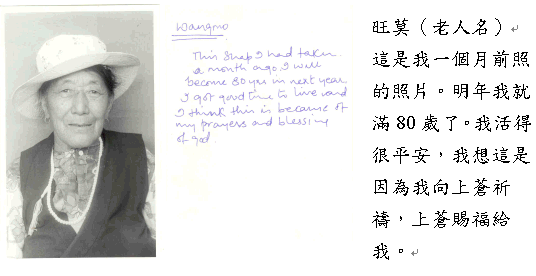 Wangmo
This snap I had taken
a month ago, I will
become 80 yrs in next year.
I got good time to live and
I think this is because of
my prayers and blessing
of god.
旺莫（老人名）
這是我一個月前照
的照片。明年我就
滿 80 歲了。我活得
很平安，我想這是
因為我向上蒼祈
禱，上蒼賜福給
我。